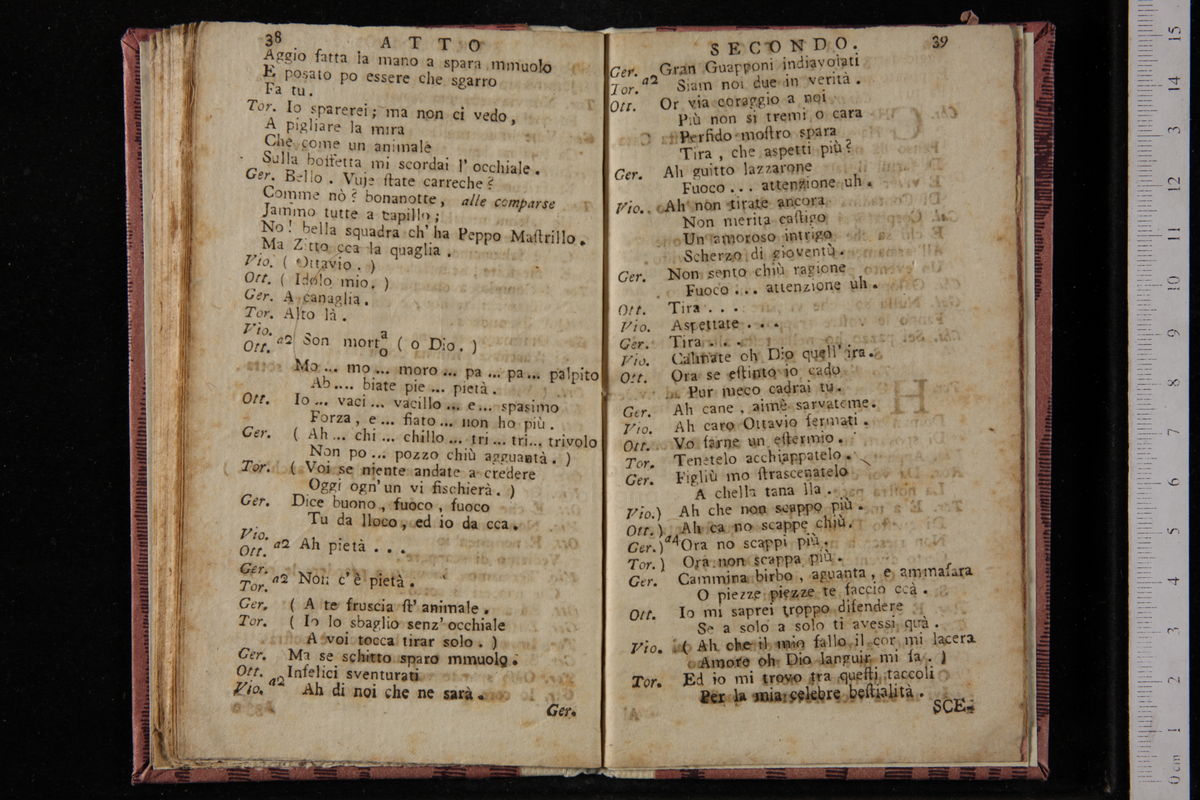 38 ATTO
Aggio fatta la mano a spara mmuolo
E posato po essere che sgarro
Fa tu.
Tor. Io sparerei; ma non ci vedo,
A pigliare la mira
Che come un animale
Sulla boſſetta mi scordai l'occhiale.
Ger. Bello. Vuje ſtate carreche?
Comme nò? bonanotte, alle comparse
Jammo tutte a tapillo;
No! bella squadra ch'ha Peppo Maſtrillo.
Ma Zitto cca la quaglia.
Vio. (Ottavio.)
Ott. (Idolo mio.)
Ger. A canaglia.
Tor. Alto là.
Vio.
Ott. a2 Son mort a o (o Dio.)
Mo... mo... moro... pa... pa... palpito
Ab.... biate pie... pietà.
Ott. Io... vaci... vacillo... e... spasimo
Forza, e... fiato... non ho più.
Ger. (Ah... chi... chillo... tri... tri... trivolo
Non po... pozzo chiù agguantà.)
Tor. (Voi se niente andate a credere
Oggi ogn'un vi fischierà.)
Ger. Dice buono, fuoco, fuoco
Tu da lloco, ed io da cca.
Vio.
Ott. a2 Ah pietà...
Ger.
Tor. a2 Non c'è pietà.
Ger. (A te fruscia ſt'animale.
Tor. (Io lo sbaglio senz'occhiale
A voi tocca tirar solo.)
Ger. Ma se schitto sparo mmuolo.
Ott. a2 Infelici sventurati
Vio. Ah di noi che ne sarà.
Ger.
SECONDO. 39
Ger. Gran Guapponi indiavolati
Tor. a2 Siam noi due in verità.
Ott. Or via coraggio a noi
Più non si tremi o cara
Perfido moſtro spara
Tira, che aspetti più?
Ger. Ah guitto lazzarone
Fuoco... attenzione uh.
Vio. Ah non tirate ancora
Non merita caſtigo
Un amoroso intrigo
Scherzo di gioventù.
Ger. Non sento chiù ragione
Fuoco... attenzione uh.
Ott. Tira...
Vio. Aspettate...
Ger. Tira...
Vio. Calmate oh Dio quell'ira.
Ott. Ora se eſtinto io cado
Pur meco cadrai tu.
Ger. Ah cane, aimè sarvateme.
Vio. Ah caro Ottavio fermati.
Ott. Vo farne un eſtermio.
Tor. Tenetelo acchiappatelo.
Ger. Figliù mo ſtrascenatelo
A chella tana lla.
Vio.) Ah che non scappo più.
Ott.) Ah ca no scappe chiù.
Ger.) a4 Ora no scappi più.
Tor.) Ora non scappa più.
Ger. Cammina birbo, aguanta, e ammafara
O piezze piezze te faccio ccà.
Ott. Io mi saprei troppo difendere
Se a solo a solo ti avessi quà.
Vio. (Ah che il mio fallo il cor mi lacera
Amore oh Dio languir mi fa.)
Tor. Ed io mi trovo tra queſti taccoli
Per la mia celebre beſtialità.
SCE-
15
14
13
12
11
10
9
8
7
6
5
4
3
2
1
0 cm